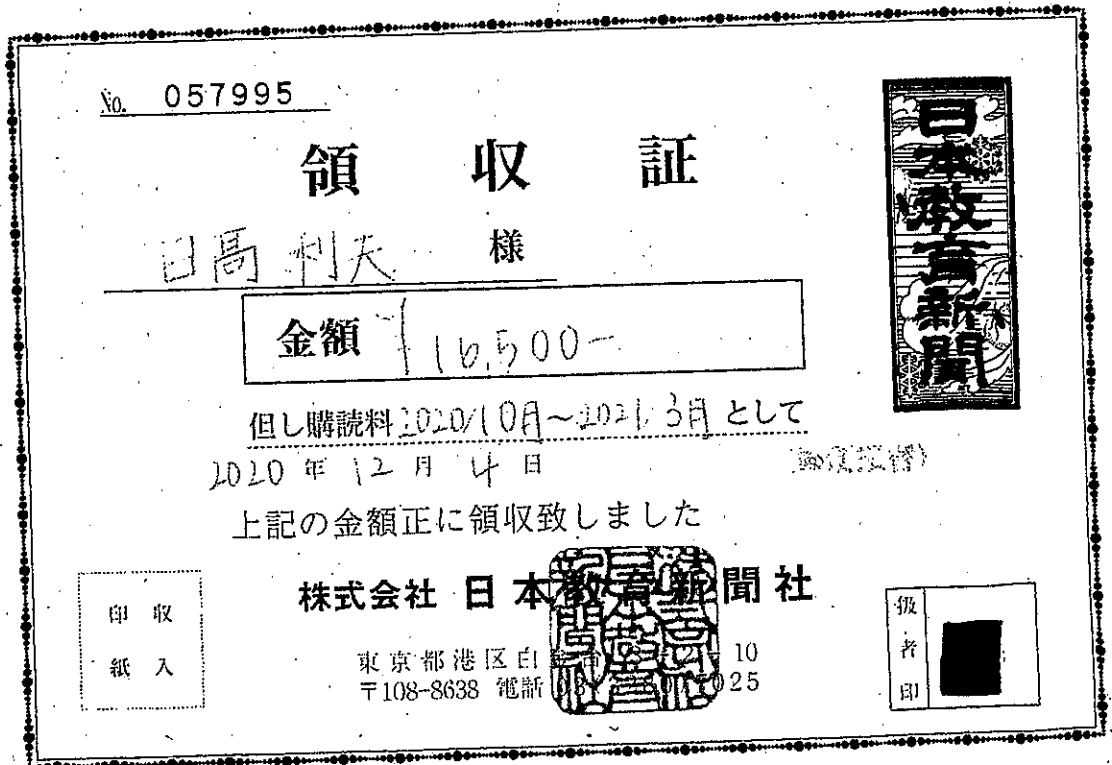 No. 057995
日本教育新聞
領収証
日髙利夫 様
金額 ¥16,500-
但し購読料2020/10月～2021/3月として
2020年12月4日
上記の金額正に領収致しました
株式会社 日本教育新聞社
東京都港区白
10
〒108-8638 電話
025
収入
印紙
扱者印